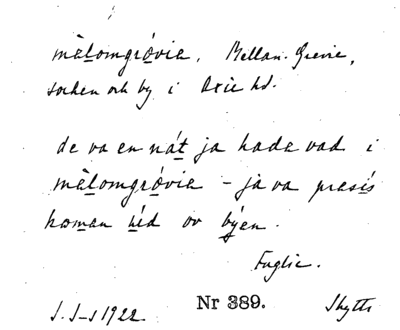 mèlomgrǿvia, Mellan-Grevie,
socken och by i Oxie hd.
de va en nát ja hada vad i
mèlomgrǿvia – ja va presís
koman híd ov býen.
Fuglie.
S. S-s 1922. Nr 389. Skytts